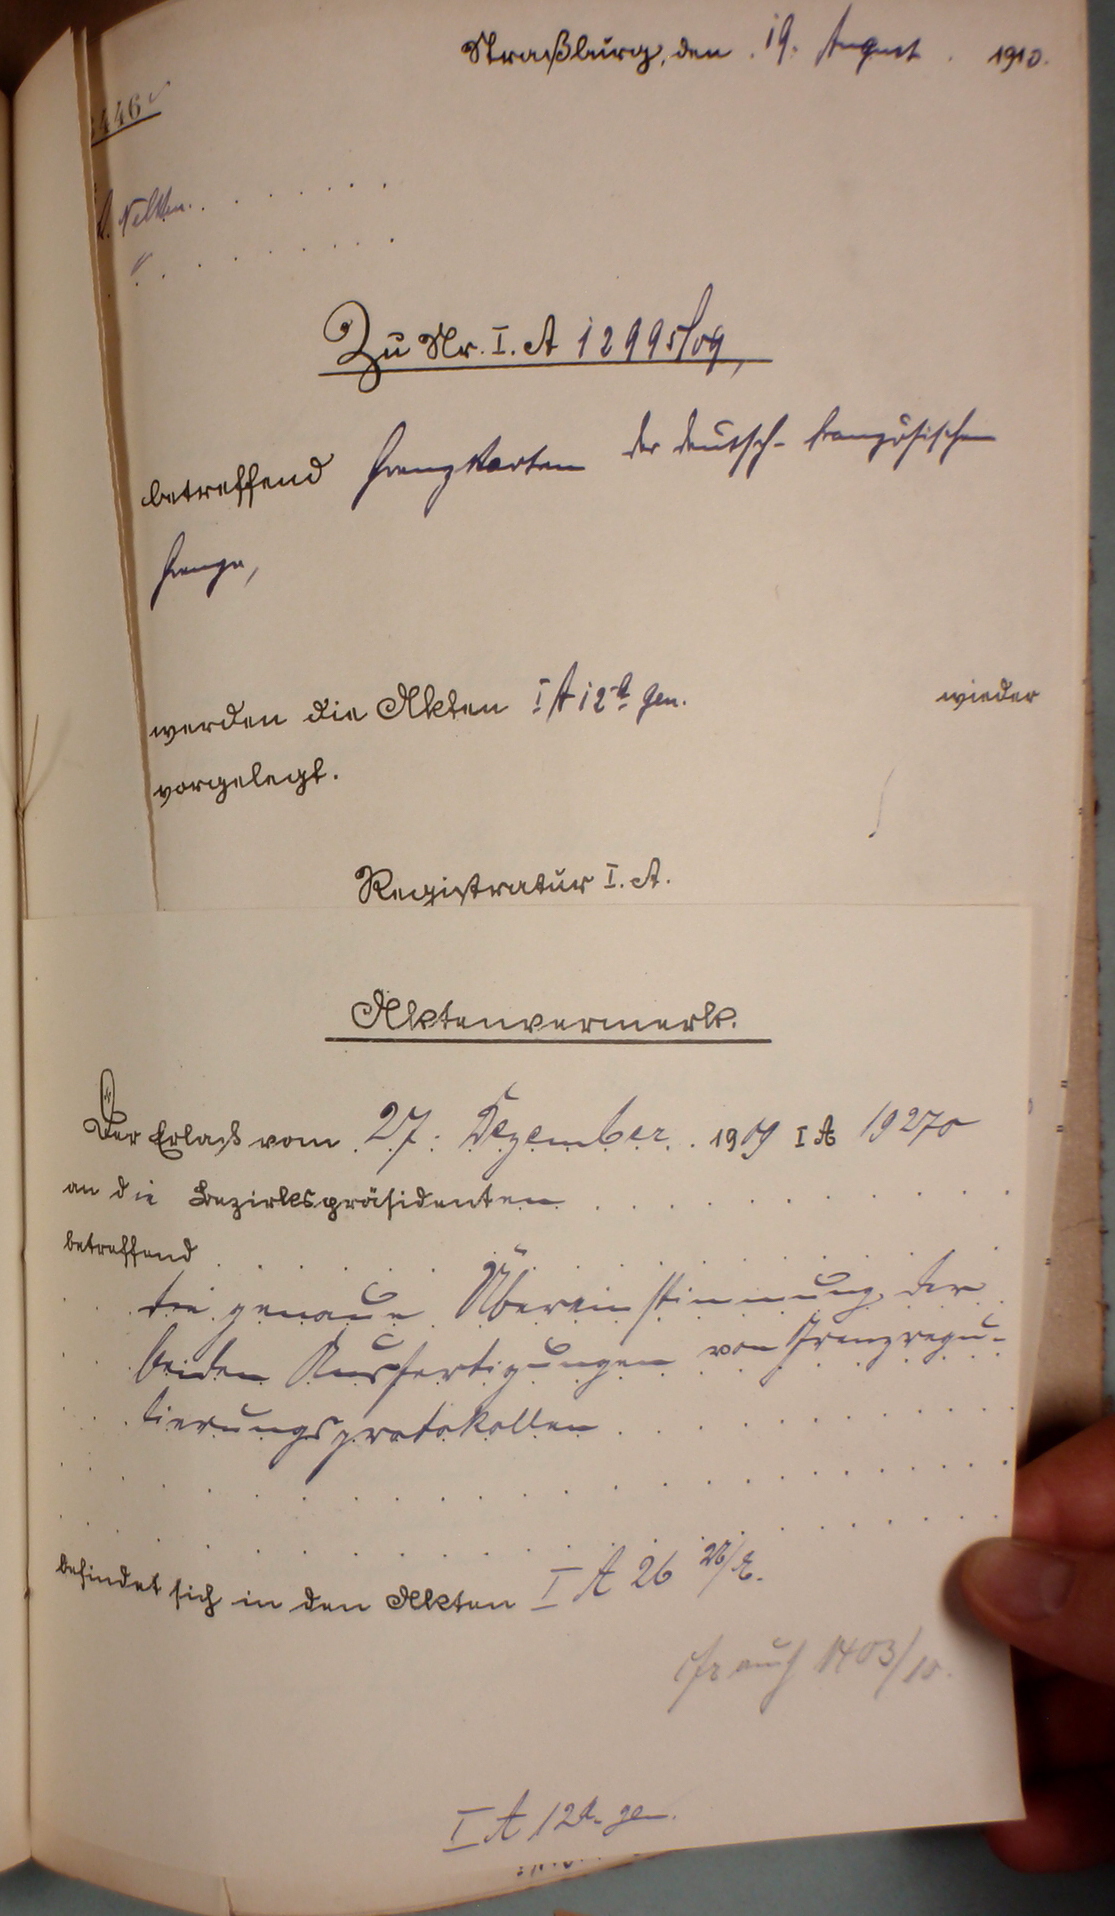 Straßburg, den 19. August 1910.
446
Zu Nr. I. A 12995/09,
betreffend Grenzkarten der deutsch-französischen
Grenze,
werden die Akten I A 12 a gen. wieder
vorgelegt.
Registratur I. A.
Aktenvermerk.
Der Erlaß vom 27. Dezember 1909 I A 19270
an die Bezirkspräsidenten
betreffend
die genaue Übereinstimmung der
beiden Ausfertigungen von Grenzregu-
lierungsprotokollen
befindet sich in den Akten I A 26
auch 1403/10.
I A 12a. gen.